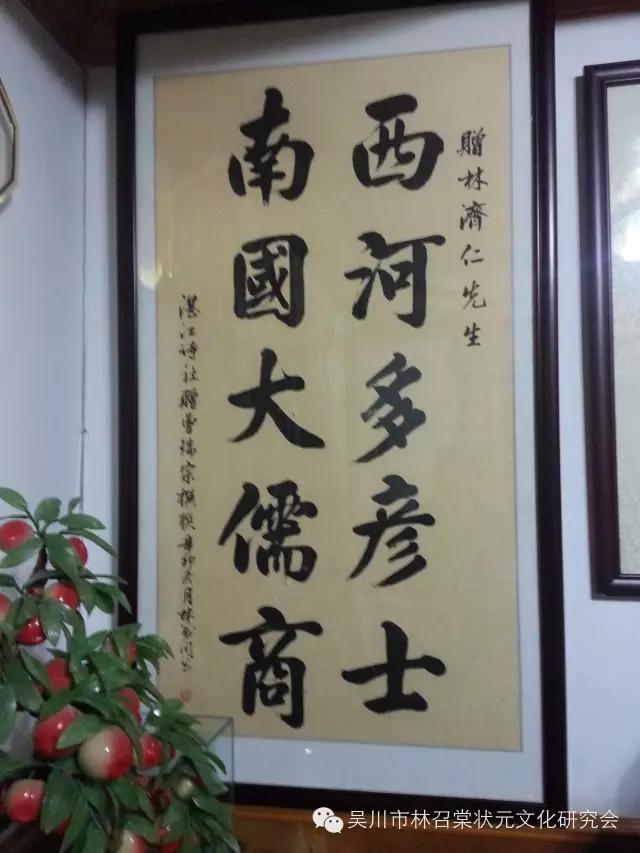 贈林濟仁先生
西河多彦士
南國大儒商
湛江诗社贈曹瑞宗撰联辛卯冬月林
吴川市林召棠状元文化研究会